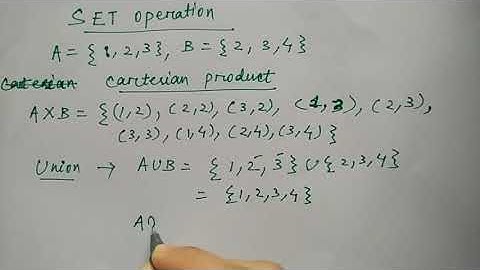 SET operation
A = {1, 2, 3}, B = {2, 3, 4}
carterian product
A×B = {(1,2), (2,2), (3,2), (1,3), (2,3),
(3,3), (1,4), (2,4), (3,4)}
Union → A∪B = {1, 2, 3} ∪ {2, 3, 4}
= {1, 2, 3, 4}
A∩